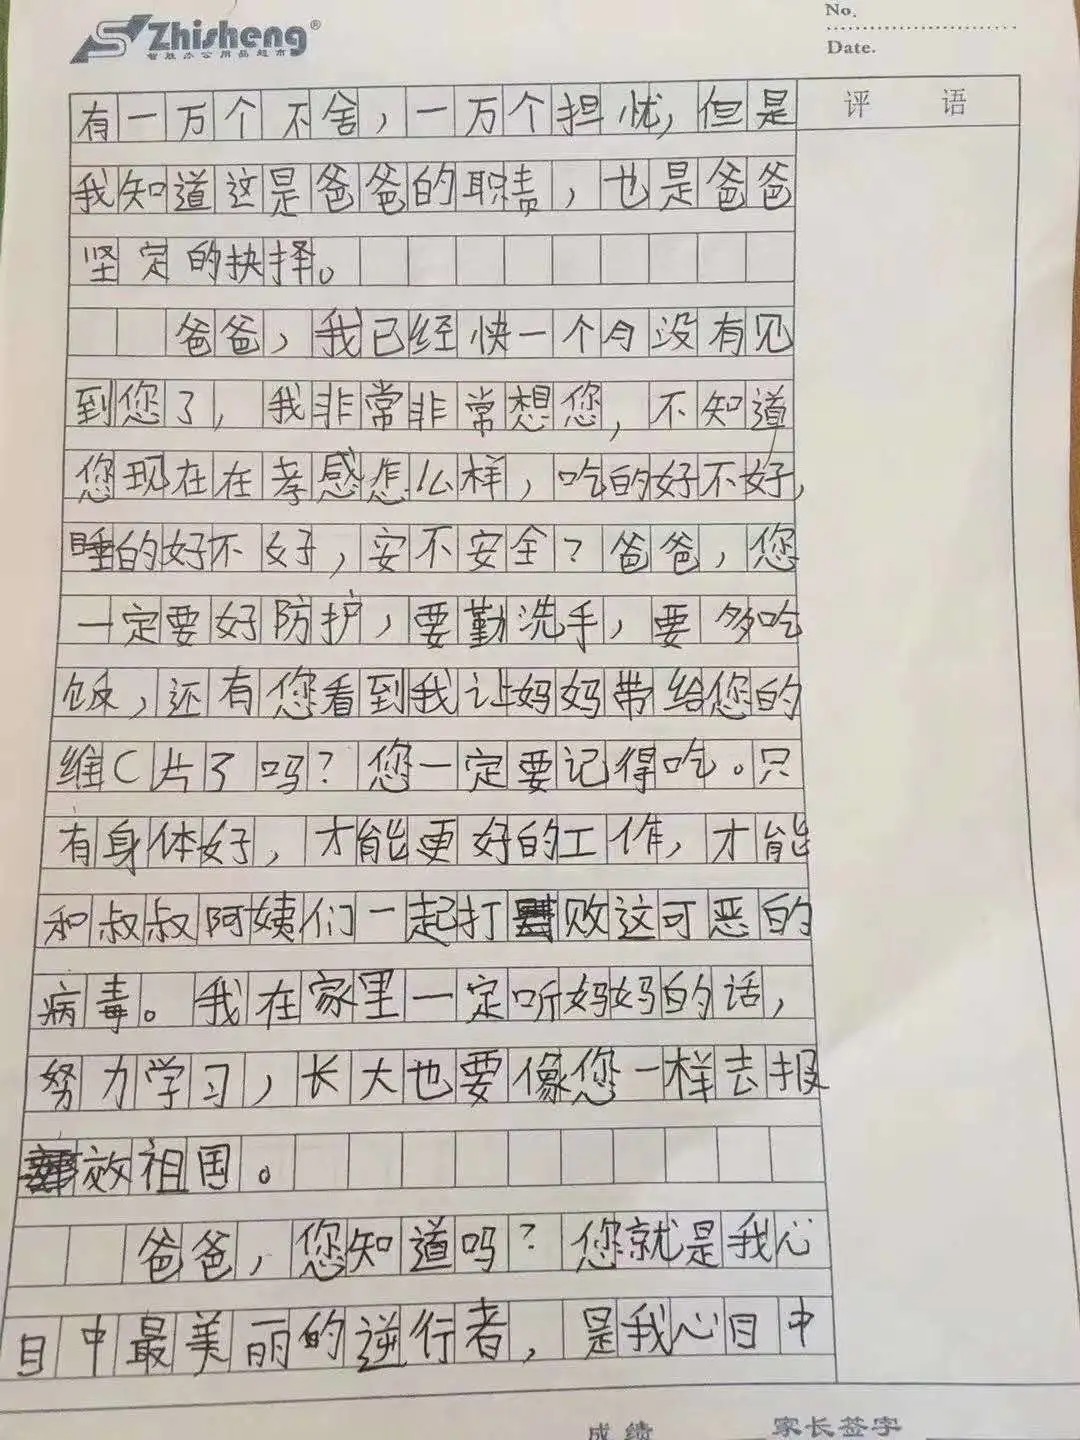 Zhisheng®
智胜办公用品超市
No.
Date.
评 语
有一万个不舍，一万个担忧，但是
我知道这是爸爸的职责，也是爸爸
坚定的抉择。
爸爸，我已经快一个月没有见
到您了，我非常非常想您，不知道
您现在在孝感怎么样，吃的好不好，
睡的好不好，安不安全？爸爸，您
一定要好防护，要勤洗手，要多吃
饭，还有您看到我让妈妈带给您的
维C片了吗？您一定要记得吃。只
有身体好，才能更好的工作，才能
和叔叔阿姨们一起打败这可恶的
病毒。我在家里一定听妈妈的话，
努力学习，长大也要像您一样去报
效祖国。
爸爸，您知道吗？您就是我心
目中最美丽的逆行者，是我心目中
成绩 家长签字